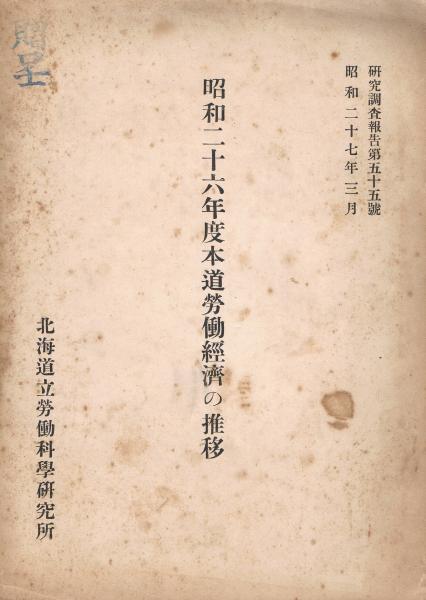 研究調査報告第五十五號
昭和二十七年三月
昭和二十六年度本道勞働經濟の推移
北海道立勞働科學研究所
贈呈